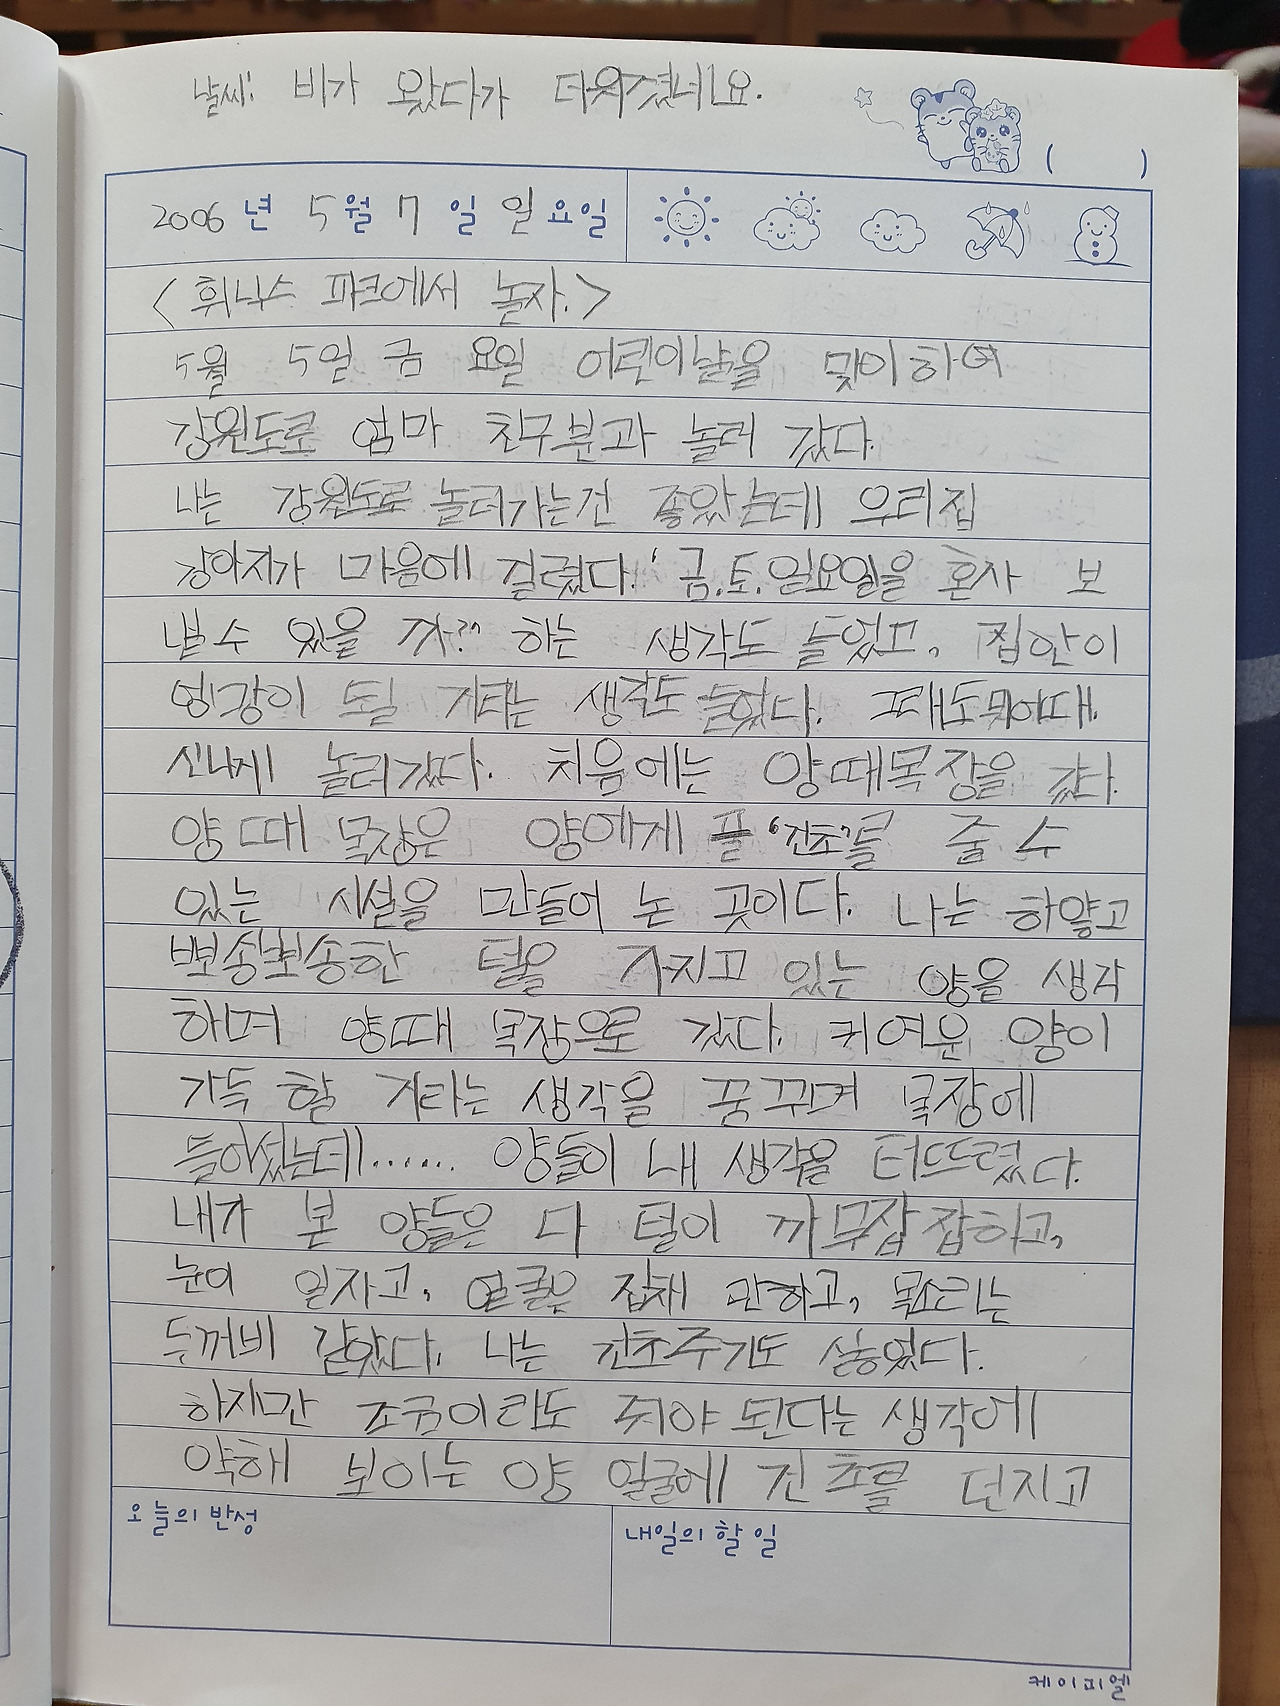 날씨: 비가 왔다가 더워졌네요.
( )
2006 년 5 월 7 일 일 요일
<휘닉스 파크에서 놀자.>
5월 5일 금 요일 어린이날을 맞이하여
강원도로 엄마 친구분과 놀러 갔다.
나는 강원도로 놀러가는건 좋았는데 우리집
강아지가 마음에 걸렸다. '금.토.일요일을 혼자 보
낼 수 있을 까?" 하는 생각도 들었고, 집안이
엉강이 될 거라는 생각도 들었다.
신나게 놀러갔다. 처음에는 양떼목장을 갔다.
양떼 목장은 양에게 풀 '건초'를 줄 수
있는 시설을 만들어 논 곳이다. 나는 하얗고
뽀송뽀송한 털을 가지고 있는 양을 생각
하며 양떼 목장으로 갔다. 귀여운 양이
가득 할 거라는 생각을 꿈꾸며 목장에
들어섰는데...... 양들이 내 생각을 터뜨렸다.
내가 본 양들은 다 털이 까무잡잡하고,
눈이 일자고, 얼굴은 집채 만하고, 목소리는
두꺼비 같았다. 나는 건초주기도 싫었다.
하지만 조금이라도 줘야 된다는 생각에
약해 보이는 양 얼굴에 건초를 던지고
오늘의 반성
내일의 할 일
케이피엘